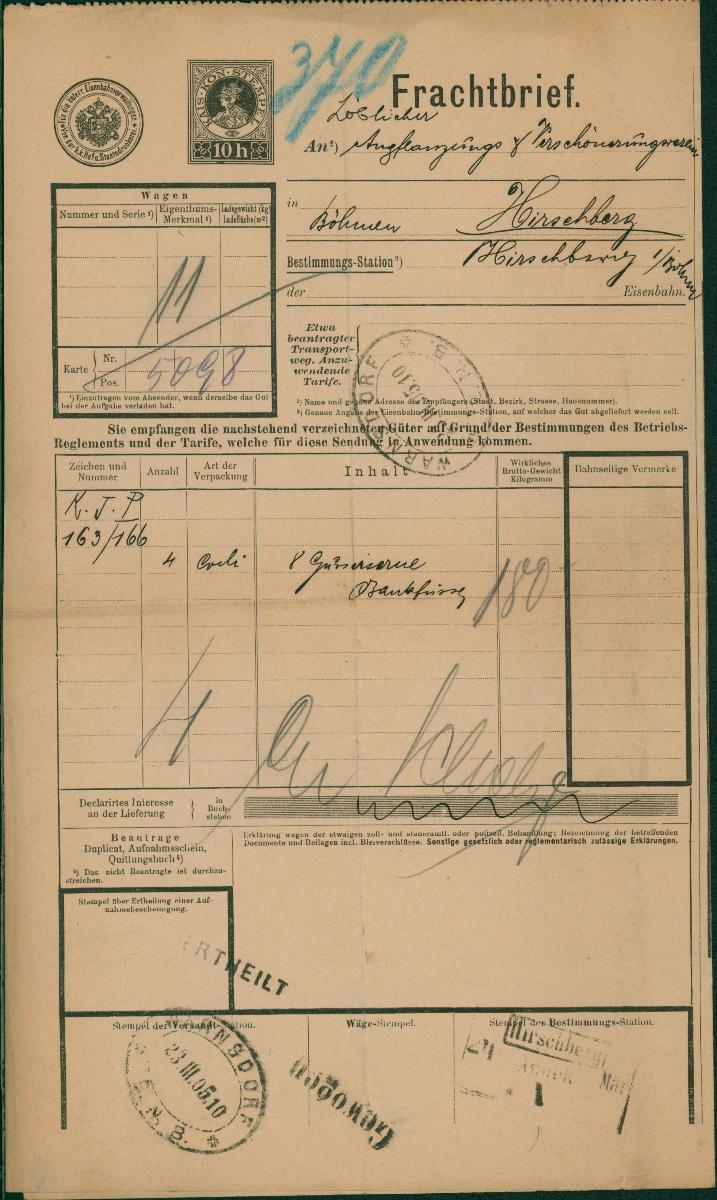 370
Für die österr. Eisenbahnverwaltungen.
der k.k. Hof u. Staatsdruckerei
KAIS·KÖN·STEMPEL
10 h
Frachtbrief.
Löblicher
An²) Anpflanzungs & Verschönerungsverein
in
Böhmen Hirschberg
Bestimmungs-Station³) Hirschberg i/Böhmen
der Eisenbahn.
Wagen
Nummer und Serie¹) Eigenthums-Merkmal¹) Ladegewicht (kg) Ladefläche (m²)
11
Karte Nr. Pos. 5098
¹) Einzutragen vom Absender, wenn derselbe das Gut
bei der Aufgabe verladen hat.
Etwa
beantragter
Transport-
weg. Anzu-
wendende
Tarife.
WARNSDORF B.N.B.
²) Name und genaue Adresse des Empfängers (Stadt, Bezirk, Strasse, Hausnummer).
³) Genaue Angabe der Eisenbahn-Bestimmungs-Station, auf welcher das Gut abgeliefert werden soll.
Sie empfangen die nachstehend verzeichneten Güter auf Grund der Bestimmungen des Betriebs-
Reglements und der Tarife, welche für diese Sendung in Anwendung kommen.
Zeichen und Nummer Anzahl Art der Verpackung Inhalt Wirkliches Brutto-Gewicht Kilogramm Bahnseitige Vermerke
K. J. P
163/166
4 Colli 8 Gusseiserne
Bankfüsse 180
4
Declarirtes Interesse an der Lieferung in Buchstaben
Beantrage
Duplicat, Aufnahmsschein,
Quittungsbuch⁴)
⁴) Das nicht Beantragte ist durchzu-
streichen.
Erklärung wegen der etwaigen zoll- und steueramtl. oder polizeil. Behandlung; Bezeichnung der betreffenden
Documente und Beilagen incl. Bleiverschlüsse. Sonstige gesetzlich oder reglementarisch zulässige Erklärungen.
Stempel über Ertheilung einer Auf-
nahmebescheinigung.
ERTHEILT
Stempel der Versandt-Station. Wäge-Stempel. Stempel der Bestimmungs-Station.
WARNSDORF B.N.B.
23.III.05.10
Gewogen
Hirschberg
24 März